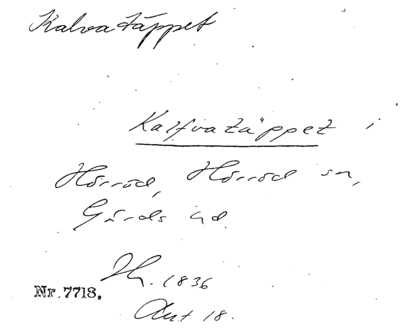 Kalvatäppet
Kalfvatäppet i
Hörröd, Hörröd sn,
Gärds hd.
Th. 1836
Nr. 7718.
Akt 18.